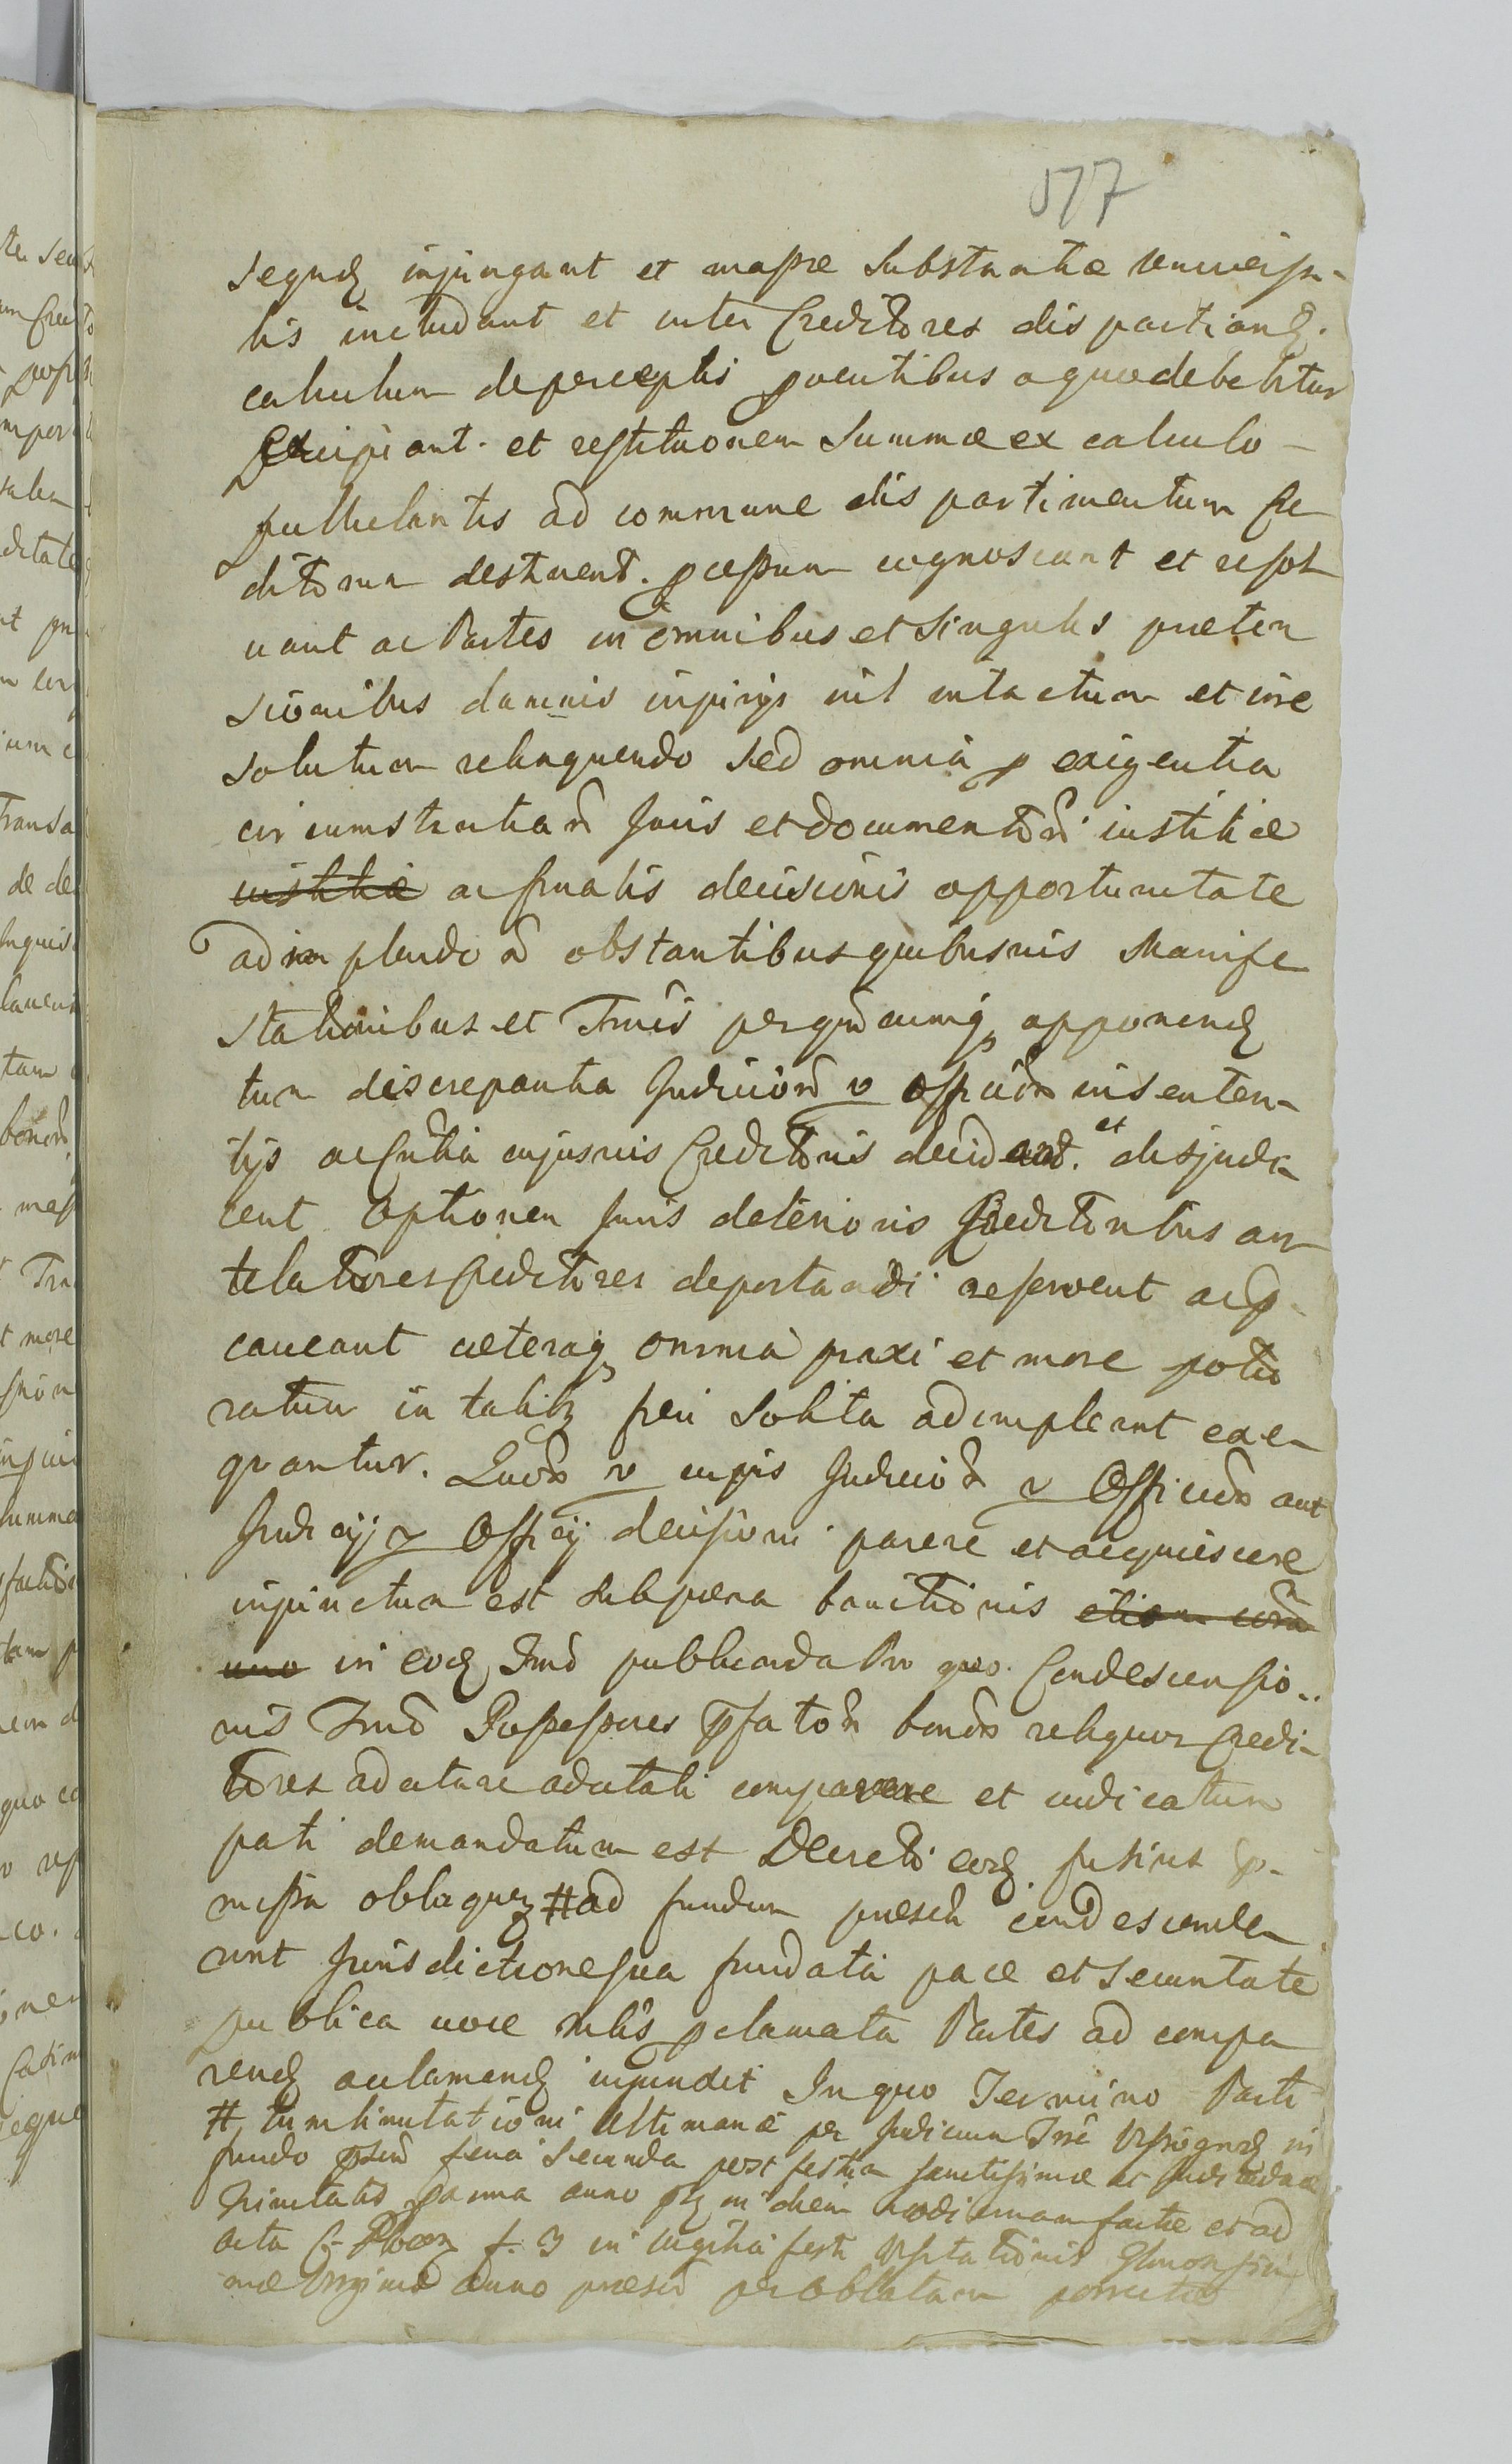 577
segnđ injungant et massae substantiae universa-
lis includant et inter Creditores dispartiant.
calculum de perceptis proventibus a quo debebitur
percipiant. et restitutionem summae ex calculo –
pullulantis ad commune dispartimentum Cre
ditorum destinent. processum cognoscant et resol
vant ac Partes in omnibus et singulis praeten
sionibus damnis injurijs nil intactum et irre
solutum relinquendo sed omnia p exigentia
circumstantiarũ Juris et documentorũ iustitiae
iustitiae ac finalis decisionis opportunitate
adimplendo nõ obstantibus quibusvis Manife
stationibus et Trñis per quẽcumq opponend
tum discrepantia Judiciorũ v Officiorũ in senten-
tijs ac absentia cujusvis Creditoris decidant. et disjudi
cent optionem Juris deterioris Creditoribus an
telatores Creditores deportandi reservent ac p
caveant caeteraq omnia praxi et more potio
ratum in talibq fieri solita adimpleant exe
quantur. Quorũ v cujus Judiciorũ v Officiorũ aut
Judicij v Officij decisioni parere et acquiescere
injunctum est sub paena bannitionis etiam coram
uno in eođ Trnõ publicanda Pro quo Condescensio..
nis Trnõ Possessores pfatorũ bonorũ reliquos Credi-
tores adcitare adcitati comparere et iudicatum
pati demandatum est Decreti eorđ fusius p-
missa obloquen # ad fundum praesen condescende
runt Jurisdictione sua fundata pace et securitate
publica voce mlis pclamata Partes ad compa
renđ acclamanđ injunxit In quo Termino Parti
# tum limitationi ultimariae per Judicium Trrê in
fundo psenti feria secunda post festum sanctissimae ac Individuae
Trinitatis pxima anno pñ in diem hodiernam factae et ad
acta C. f. 3 in vigilia festi Visitationis Gloriosissi
mae Virginis anno praesen per Oblatam porrectae